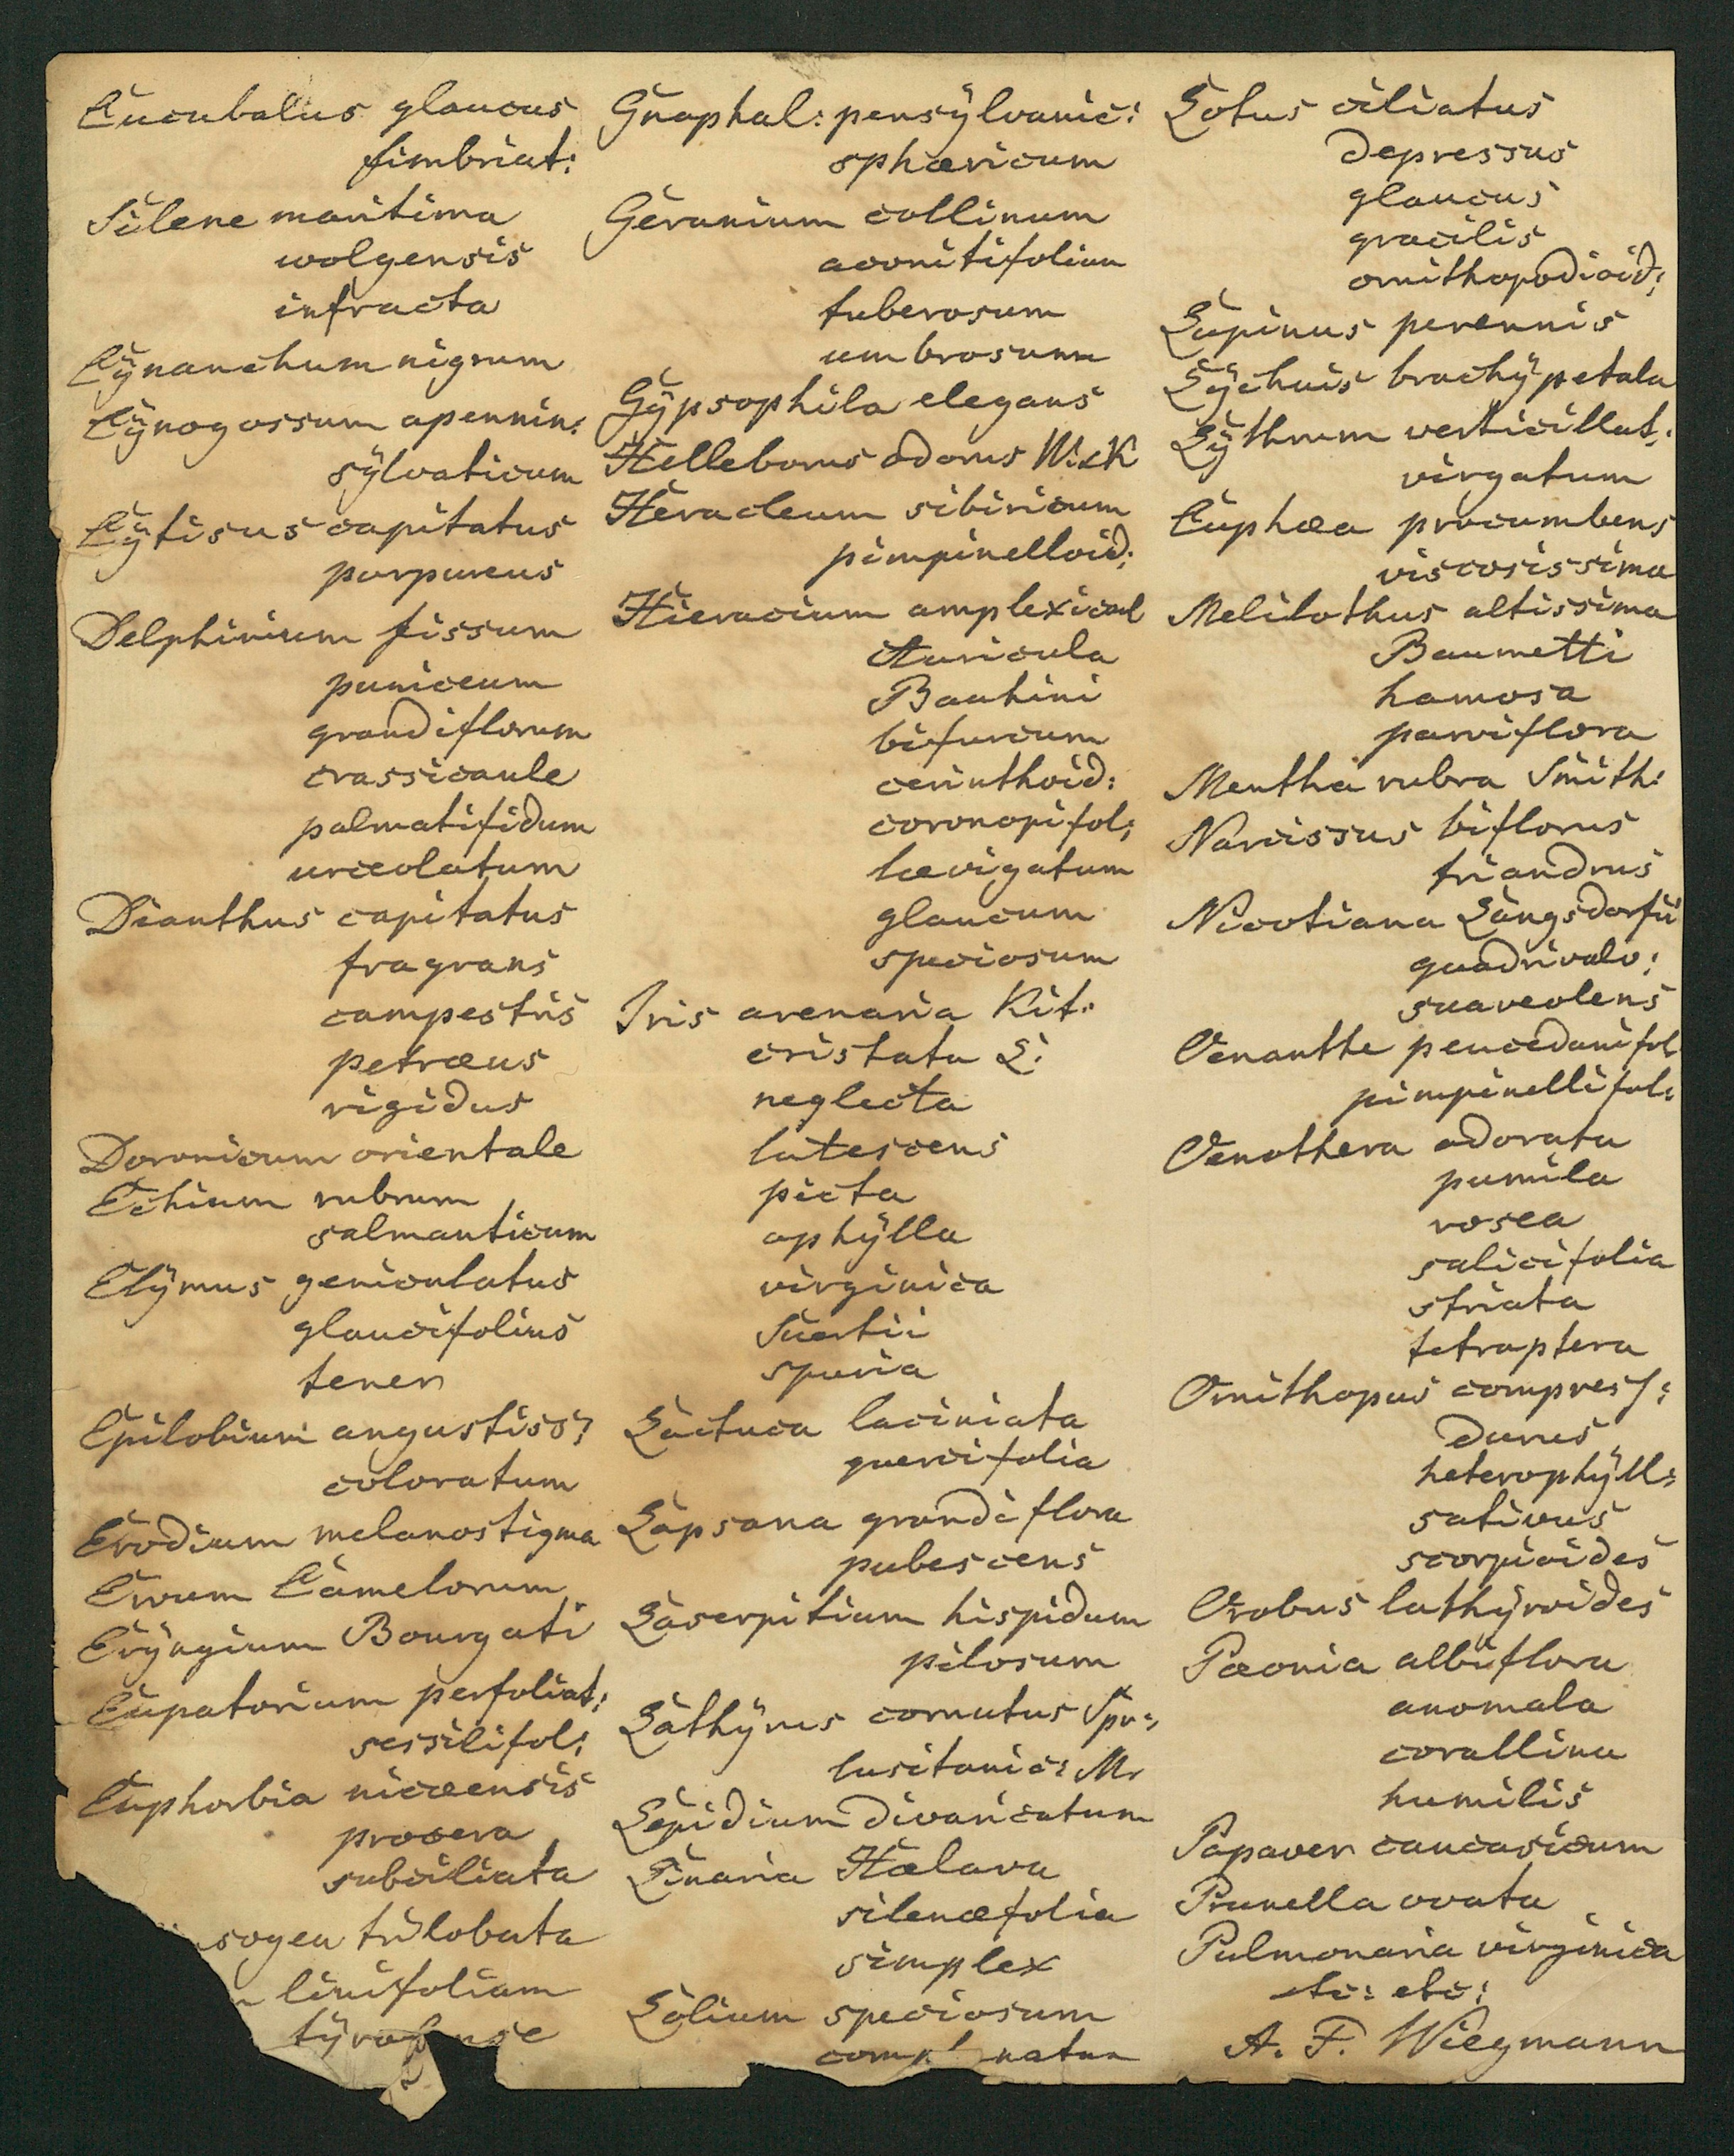 Cucubalus glaucus
fimbriat:
Silene maritima
wolgensis
infracta
Cÿnanchum nigrum
Cÿnogossum apennin:
sÿlvaticum
Cÿtisus capitatus
purpureus
Delphinium fissum
puniceum
grandiflorum
crassicaule
palmatifidum
urceolatum
Dianthus capitatus
fragrans
campestris
petræus
rigidus
Doronicum orientale
Echium rubrum
salmanticum
Elÿmus geniculatus
glaucifolius
tener
Epilobium angustiss:
coloratum
Erodium melanostigma
Ervum Camelorum
Erÿngium Bourgati
Eupatorium perfoliat:
sessilifol:
Euphorbia nicæensis
procera
subciliata
sogea trilobata
linifolium
Gnaphal: pensÿlvanic:
sphæricum
Geranium collinum
aconitifolium
tuberosum
umbrosum
Gÿpsophila elegans
Helleborus odorus W.&K
Heracleum sibiricum
pimpinelloid:
Hieracium amplexicaul
Auricula
Bauhini
bifurcum
cerinthoid:
coronopifol:
lævigatum
glaucum
speciosum
Iris arenaria Kit:
cristata L:
neglecta
lutescens
picta
aphÿlla
virginica
Suertii
spuria
Lactuca laciniata
quercifolia
Lapsana grandiflora
pubescens
Laserpitium hispidum
pilosum
Lathÿrus cornutus Spr:
lusitanic: Mr
Lepidium divaricatum
Linaria Hælava
silenæfolia
simplex
Lolium speciosum
Lotus ciliatus
depressus
glaucus
gracilis
ornithopodioid:
Lupinus perennis
Lÿchnis brachÿpetala
Lÿthrum verticillat:
virgatum
Cuphæa procumbens
viscosissima
Melilothus altissima
Baumetti
hamosa
parviflora
Mentha rubra Smith:
Narcissus biflorus
triandrus
Nicotiana Langsdorfii
quadrivalv:
suaveolens
Oenanthe peucedanifol
pimpinellifol:
Oenothera odorata
pumila
rosea
salicifolia
striata
tetraptera
Ornithopus compress:
durus
heterophÿll:
sativus
scorpioides
Orobus lathÿroides
Pæonia albiflora
anomala
corallina
humilis
Papaver caucasicum
Prunella ovata
Pulmonaria virginica
etc: etc:
A. F. Wiegmann